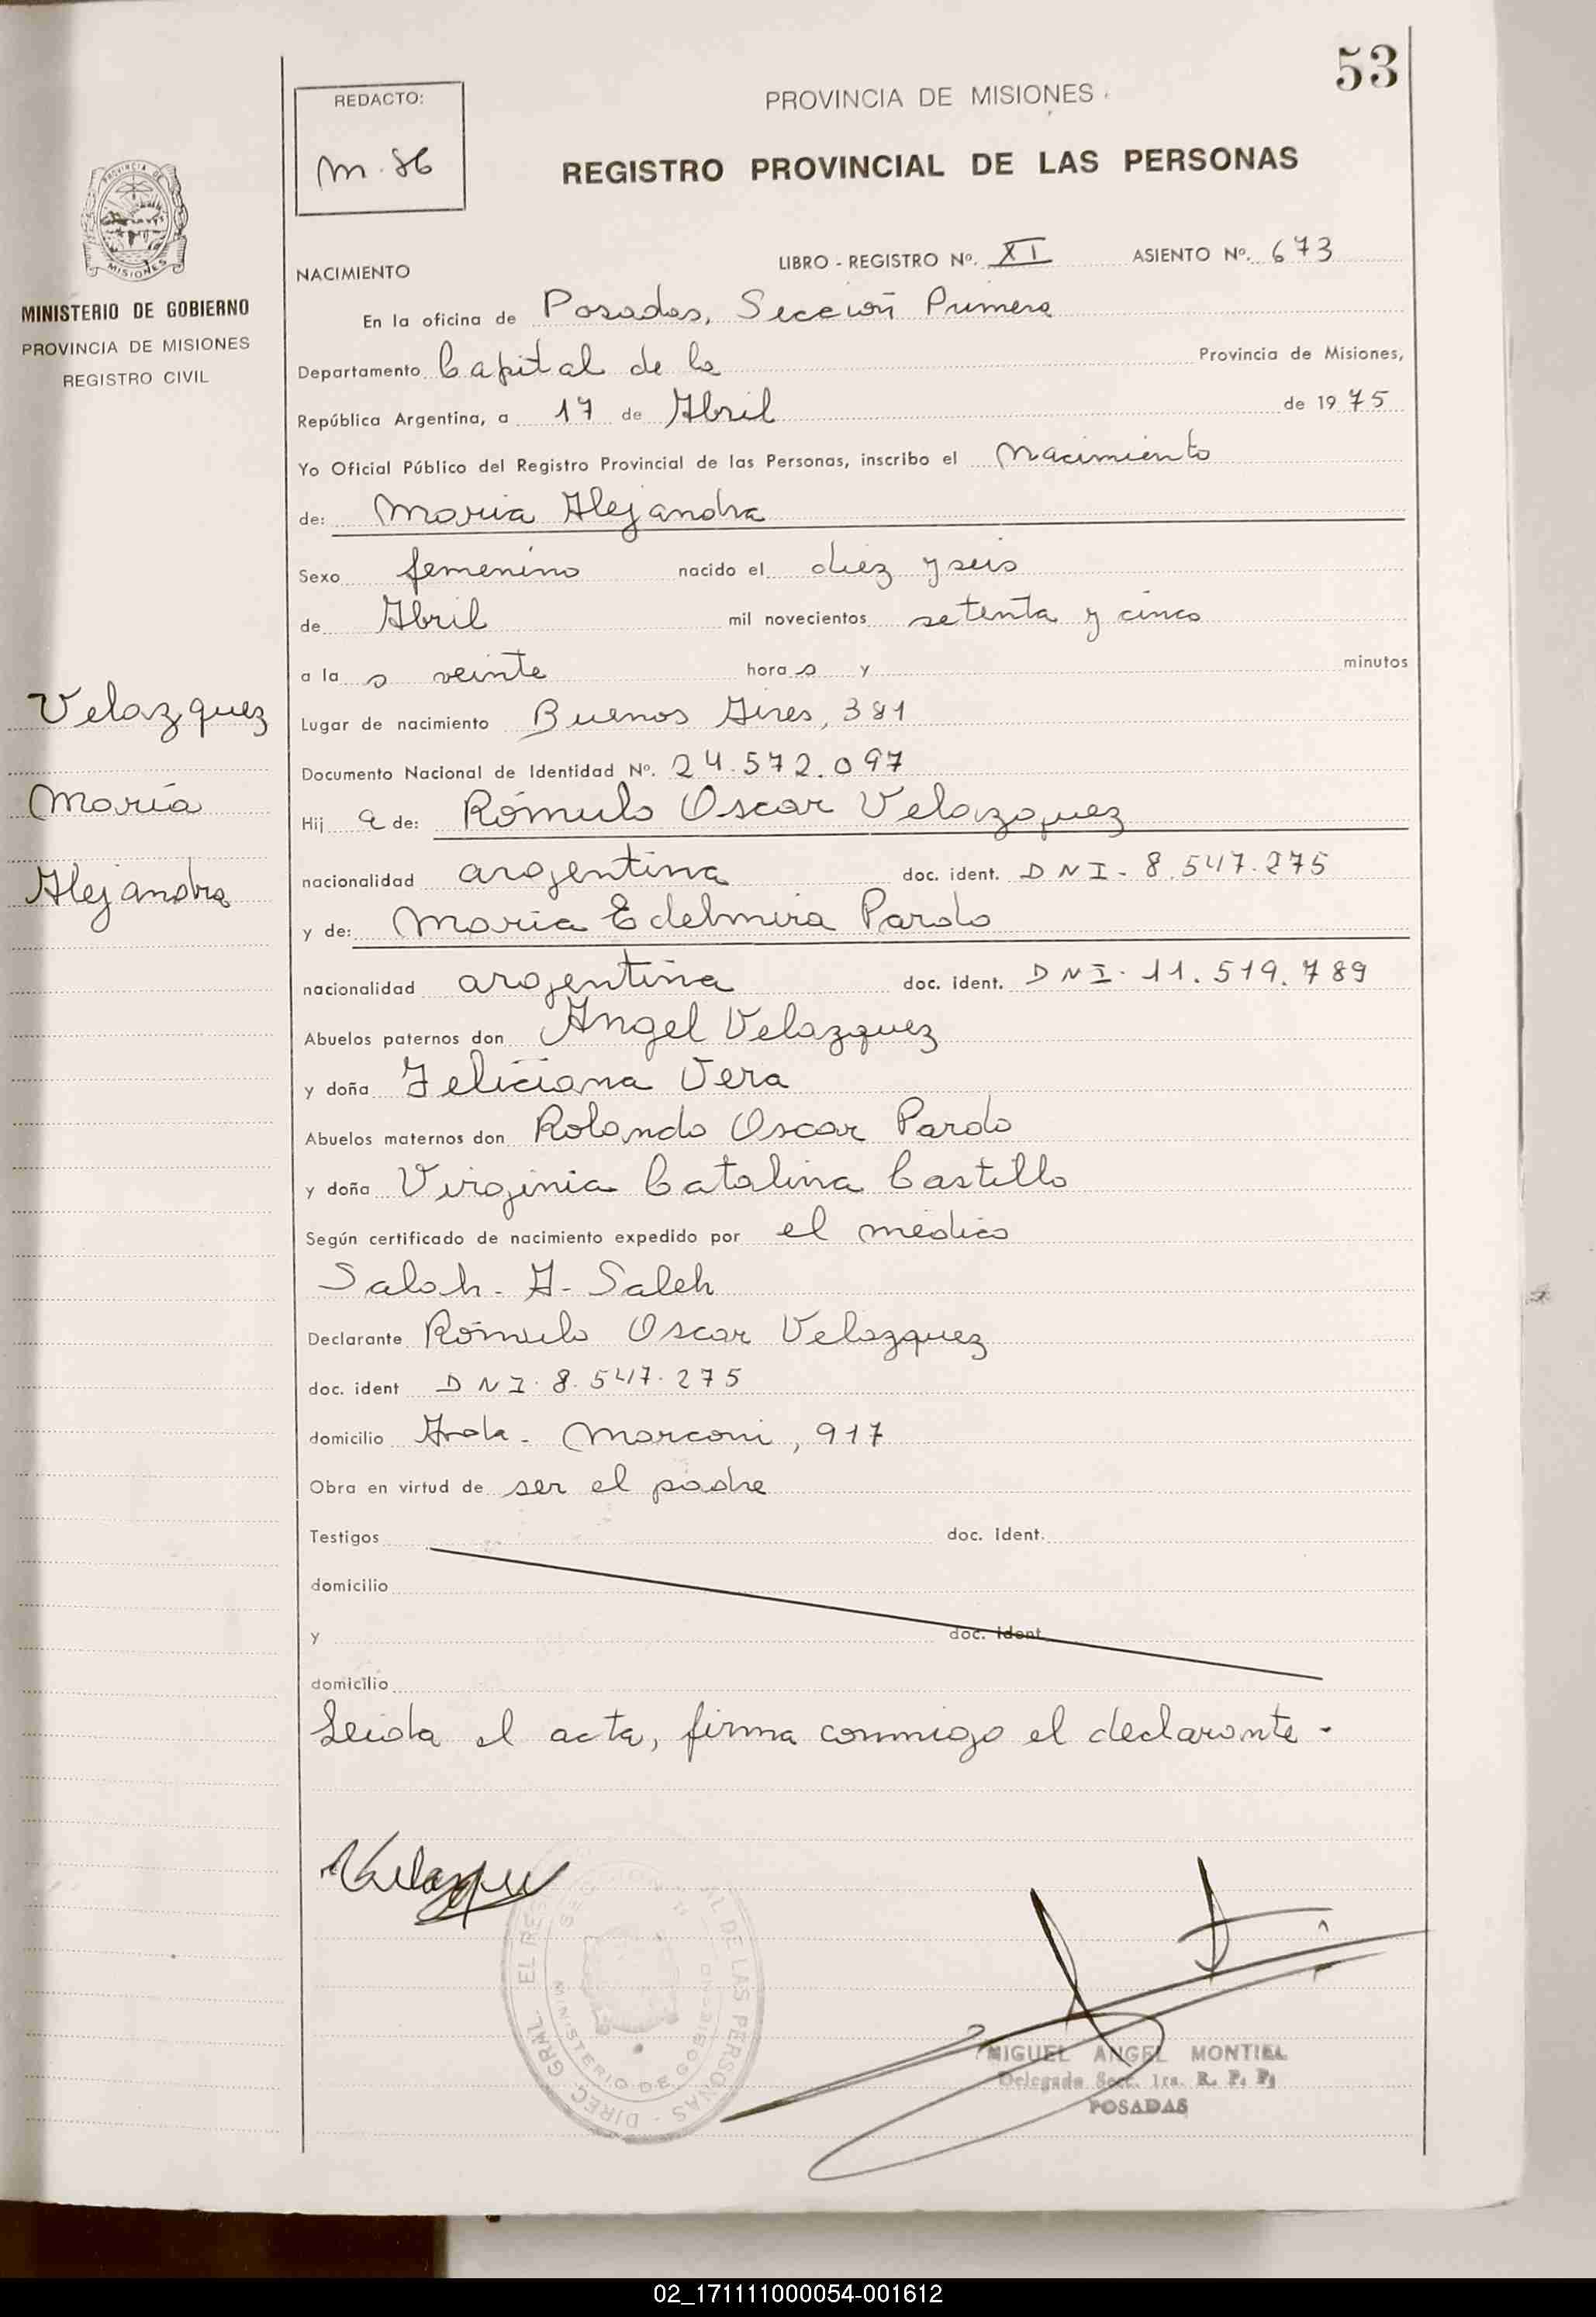 53
REDACTO:
m.86
PROVINCIA DE MISIONES
REGISTRO PROVINCIAL DE LAS PERSONAS
PROVINCIA DE
MISIONES
MINISTERIO DE GOBIERNO
PROVINCIA DE MISIONES
REGISTRO CIVIL
NACIMIENTO
LIBRO - REGISTRO Nº. XI ASIENTO Nº. 673
En la oficina de Posadas, Sección Primera
Departamento Capital de la Provincia de Misiones,
República Argentina, a 17 de Abril de 1975
Yo Oficial Público del Registro Provincial de las Personas, inscribo el Nacimiento
de: María Alejandra
Sexo femenino nacido el diez y seis
de Abril mil novecientos setenta y cinco
a la s veinte hora s y minutos
Lugar de nacimiento Buenos Aires, 381
Documento Nacional de Identidad Nº. 24.572.097
Hij a de: Rómulo Oscar Velazquez
nacionalidad argentina doc. ident. DNI- 8.547.275
y de: María Edelmira Pardo
nacionalidad argentina doc. ident. DNI- 11.519.789
Abuelos paternos don Angel Velazquez
y doña Feliciana Vera
Abuelos maternos don Rolando Oscar Pardo
y doña Virginia Catalina Castillo
Según certificado de nacimiento expedido por el médico
Saloh. A- Saleh
Declarante Rómulo Oscar Velazquez
doc. ident DNI. 8.547.275
domicilio Avda- Marconi, 917
Obra en virtud de ser el padre
Testigos doc. ident.
domicilio
y doc. ident.
domicilio
Leida el acta, firma conmigo el declarante-
Velazquez
María
Alejandra
DIREC. GRAL. EL REG DE LAS PERSONAS
MINISTERIO DE GOBIERNO
MIGUEL ANGEL MONTIEL
Delegado Secc. 1ra. R. P. P.
POSADAS
02_171111000054-001612